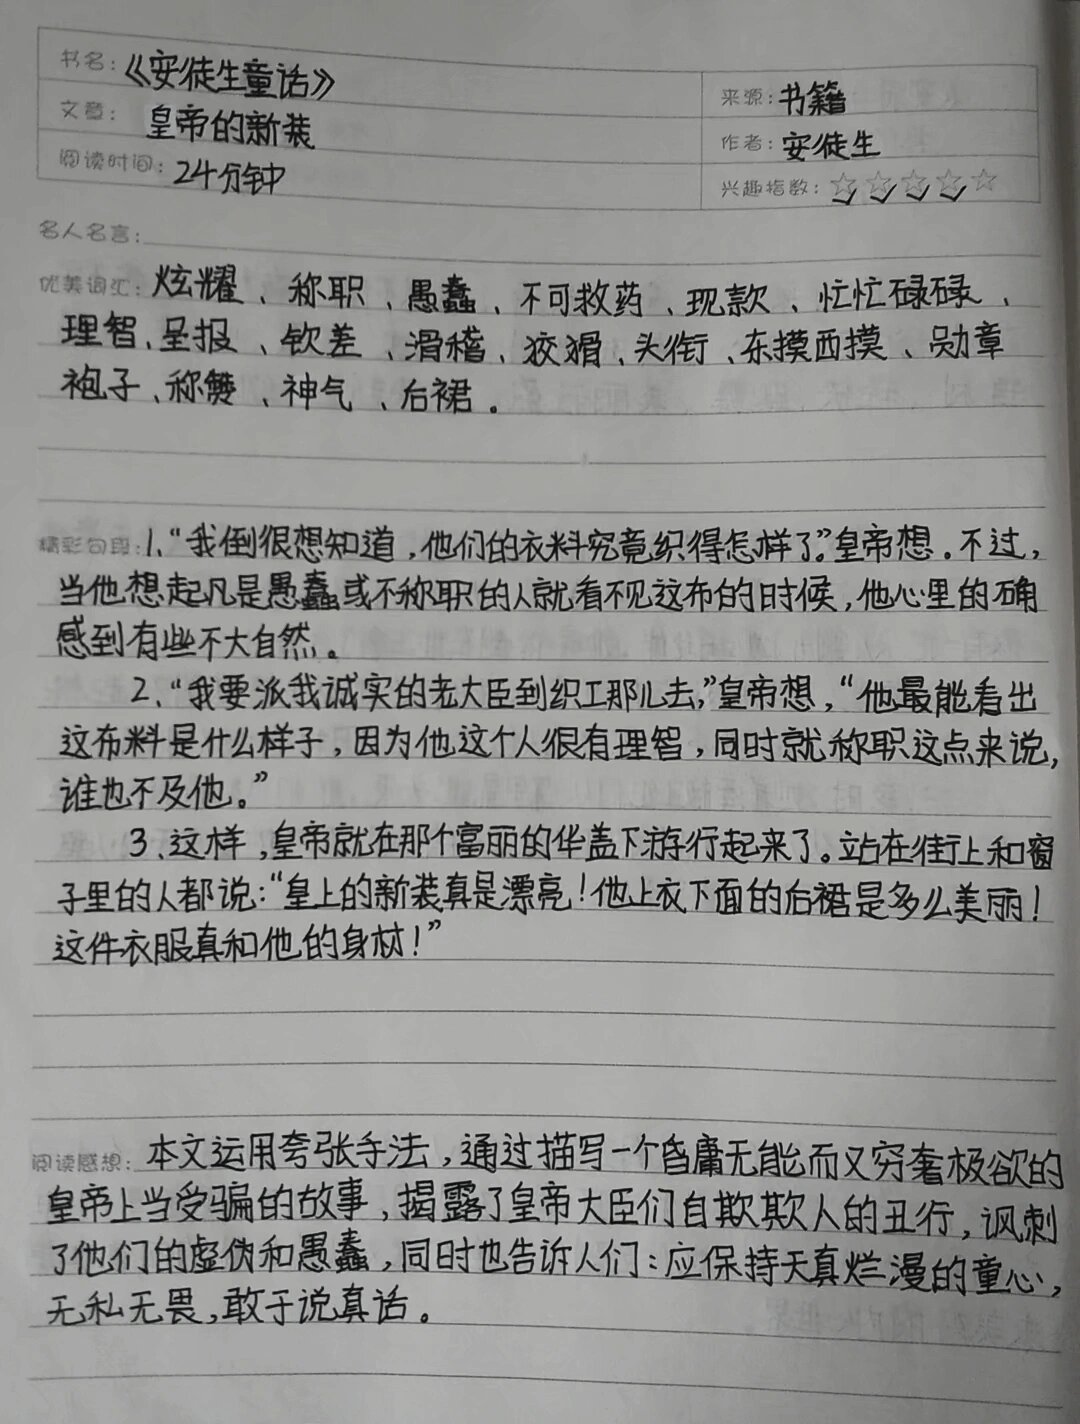 书名：《安徒生童话》
来源：书籍
文章：皇帝的新装
作者：安徒生
阅读时间：24分钟
兴趣指数：☆☆☆☆☆
名人名言：
优美词汇：炫耀、称职、愚蠢、不可救药、现款、忙忙碌碌、
理智、呈报、钦差、滑稽、狡猾、头衔、东摸西摸、勋章
袍子、称赞、神气、后裙。
精彩句段：1、“我倒很想知道，他们的衣料究竟织得怎样了。”皇帝想。不过，
当他想起凡是愚蠢或不称职的人就看不见这布的时候，他心里的确
感到有些不大自然。
2、“我要派我诚实的老大臣到织工那儿去，”皇帝想，“他最能看出
这布料是什么样子，因为他这个人很有理智，同时就称职这点来说，
谁也不及他。”
3、这样，皇帝就在那个富丽的华盖下游行起来了。站在街上和窗
子里的人都说：“皇上的新装真是漂亮！他上衣下面的后裙是多么美丽！
这件衣服真和他的身材！”
阅读感想：本文运用夸张手法，通过描写一个昏庸无能而又穷奢极欲的
皇帝上当受骗的故事，揭露了皇帝大臣们自欺欺人的丑行，讽刺
了他们的虚伪和愚蠢，同时也告诉人们：应保持天真烂漫的童心，
无私无畏，敢于说真话。